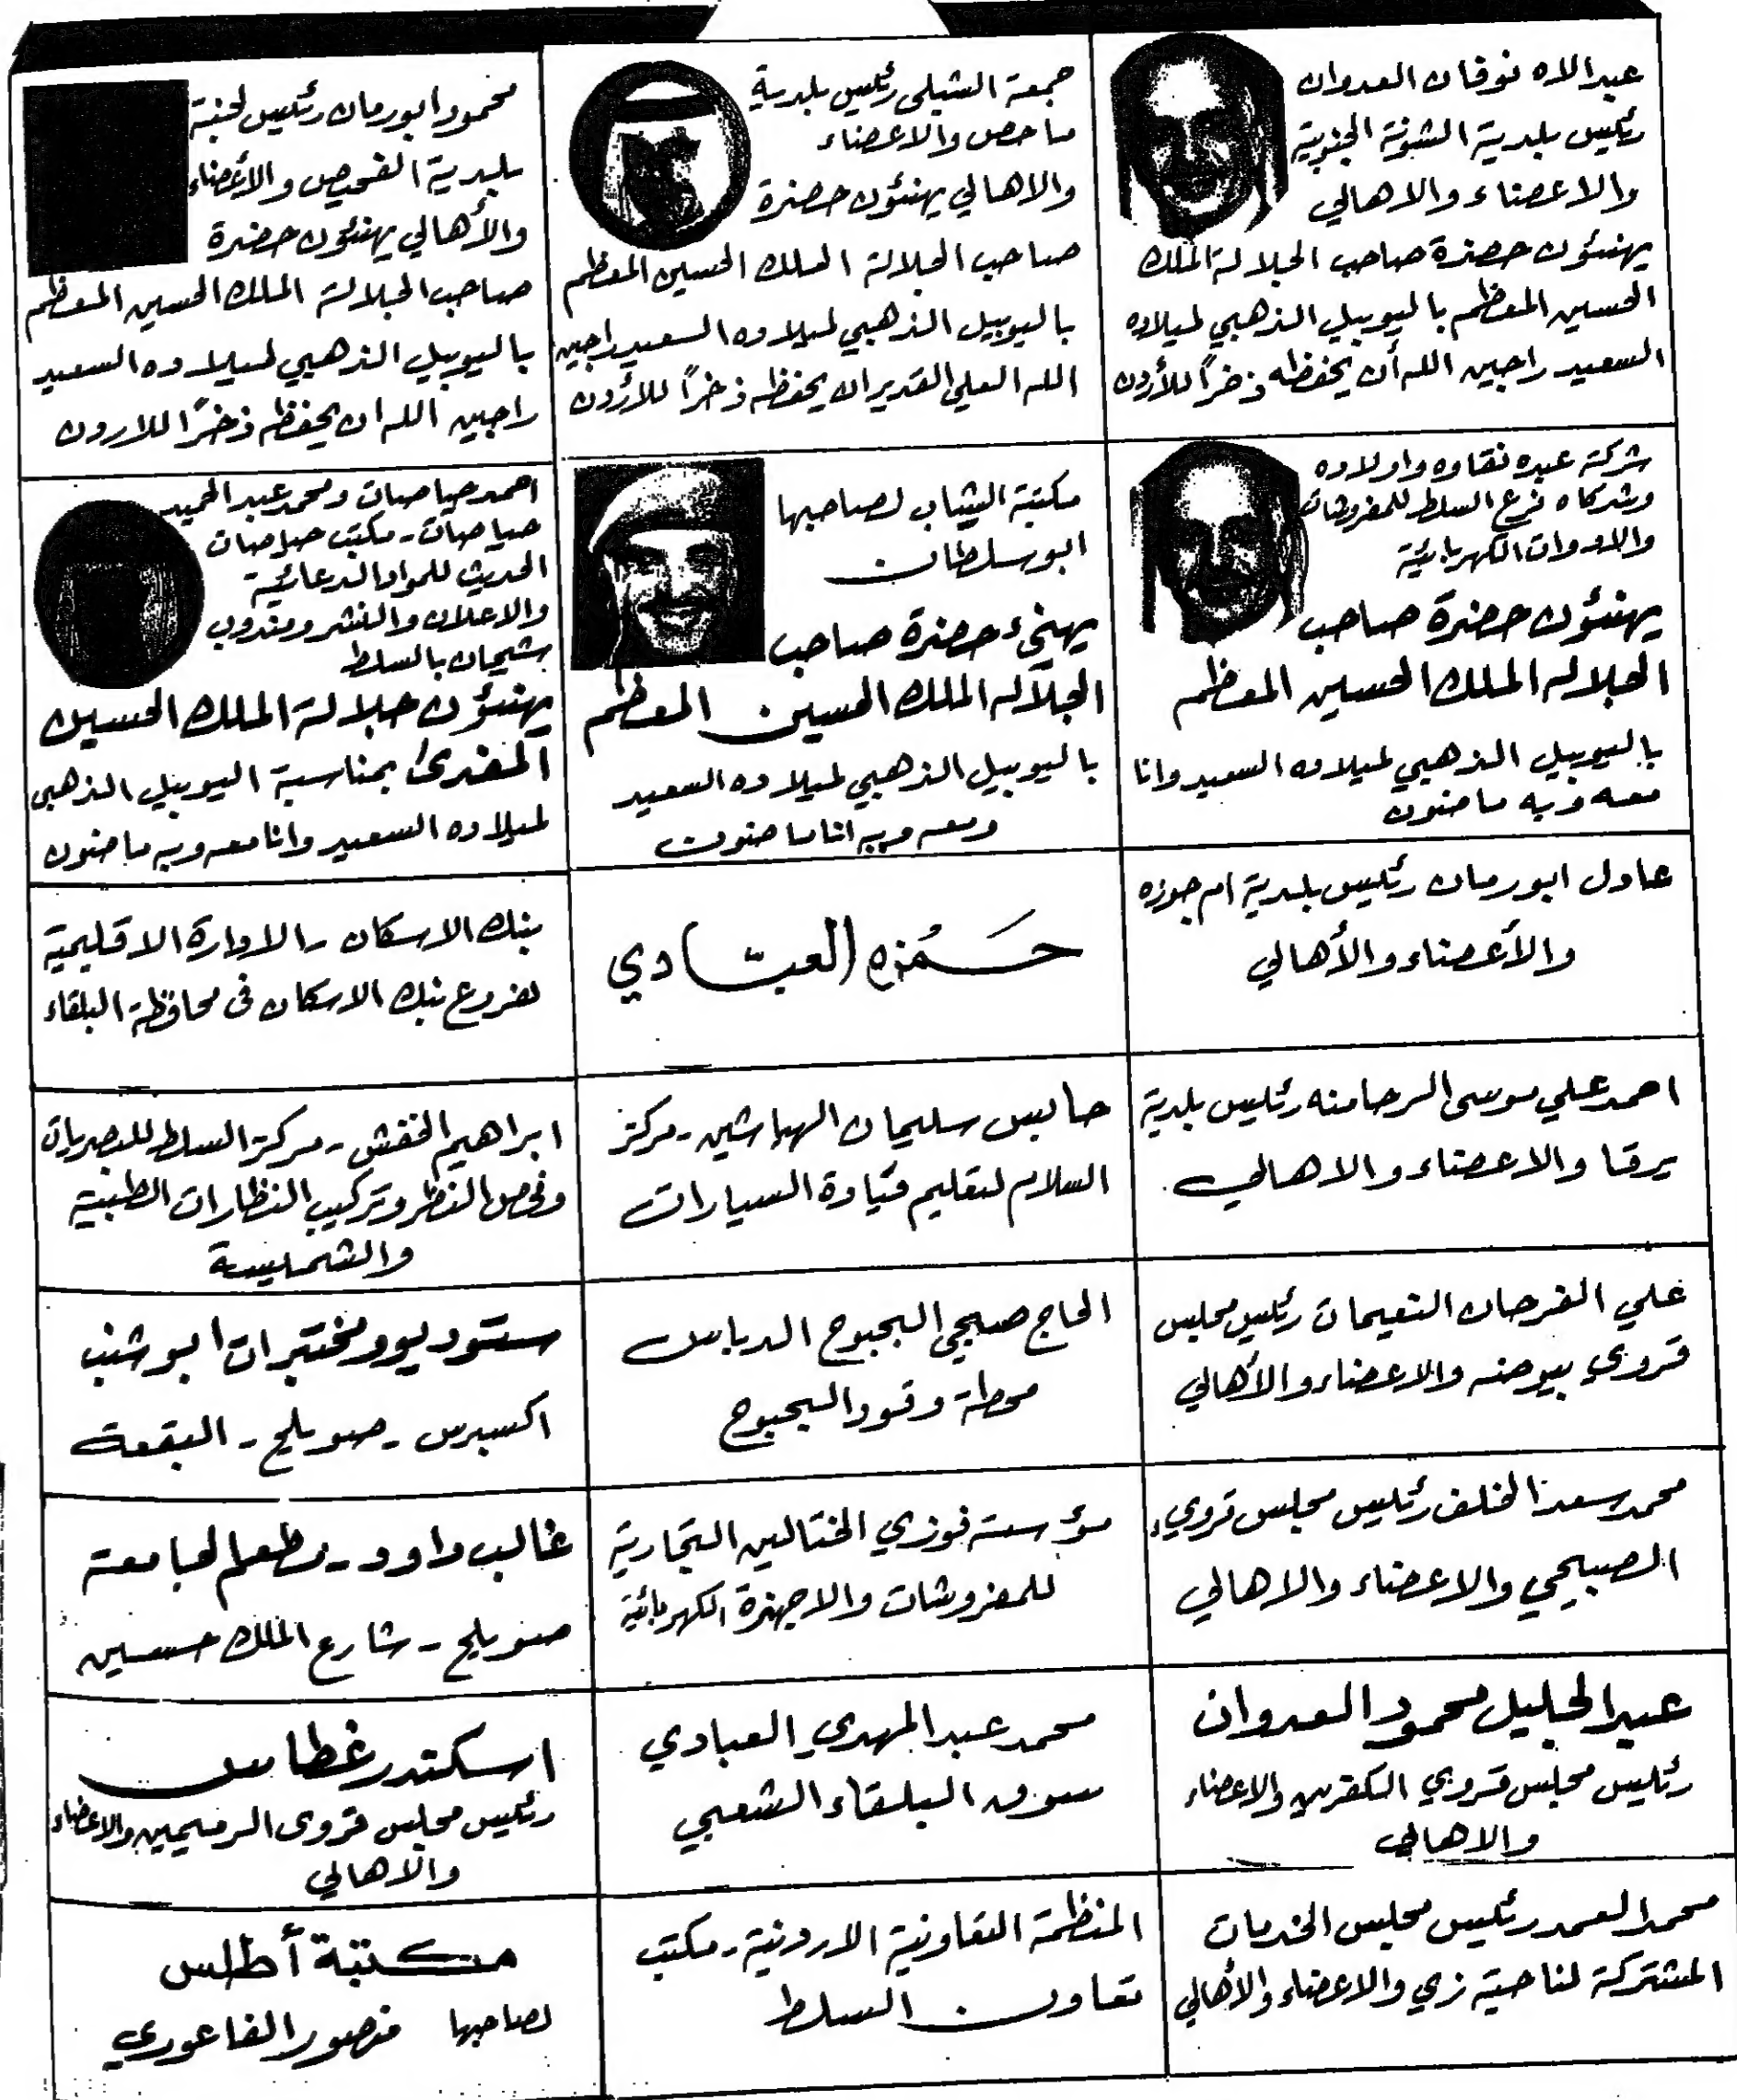 عبدالاله نوفان العدوان
رئيس بلدية الشونة الجنوبية
والاعضاء والاهالي
يهنئون حضرة صاحب الجلالة الملك
الحسين المعظم باليوبيل الذهبي لميلاده
السعيد راجين الله أن يحفظه ذخراً للأردن
جمعة الشبلي رئيس بلدية
ماحص والاعضاء
والاهالي يهنئون حضرة
صاحب الجلالة الملك الحسين المعظم
باليوبيل الذهبي لميلاده السعيد راجين
الله العلي القدير ان يحفظه ذخراً للأردن
محمود ابورمان رئيس لجنة
بلدية الفحيص والأعضاء
والأهالي يهنئون حضرة
صاحب الجلالة الملك الحسين المعظم
باليوبيل الذهبي لميلاده السعيد
راجين الله ان يحفظه ذخراً للاردن
شركة عبده نقاوه واولاده
وشركاه فرع السلط للمفروشات
والادوات الكهربائية
يهنئون حضرة صاحب
الجلاله الملك الحسين المعظم
باليوبيل الذهبي لميلاده السعيد وانا
معه وبه ماضون
مكتبة الشباب لصاحبها
ابوسلطان
يهنيء حضرة صاحب
الجلاله الملك الحسين المعظم
باليوبيل الذهبي لميلاده السعيد
ومعه وبه انا ماضون
احمد حياصات ومحمد عبدالحميد
حياصات - مكتب حياصات
الحديث للمواد الدعائية
والاعلان والنشر ومندوب
شيحان بالسلط
يهنئون جلالة الملك الحسين
المفدى بمناسبة اليوبيل الذهبي
لميلاده السعيد وانا معه وبه ماضون
عادل ابورمان رئيس بلدية ام جوزه
والأعضاء والأهالي
حَمُزه العبّادي
بنك الاسكان - الادارة الاقليمية
لفروع بنك الاسكان في محافظة البلقاء
احمد علي موسى الرحامنه رئيس بلدية
يرقا والاعضاء والاهالي.
حابس سليمان الهباشين - مركز
السلام لتعليم قيادة السيارات
ابراهيم الخفش - مركز السلط للبصريات
وفحص النظر وتركيب النظارات الطبية
والشمسية
علي الفرحان النعيمات رئيس مجلس
قروي بيوضه والاعضاء والأهالي
الحاج صبحي البحبوح الدباس
محطة وقود البحبوح
ستوديو ومختبرات ابو شنب
اكسبرس - صويلح - البقعة
محمد سعد الخلف رئيس مجلس قروي
الصبيحي والاعضاء والاهالي
مؤسسة فوزي الختالين التجارية
للمفروشات والاجهزة الكهربائية
غالب داود - مطعم الجامعة
صويلح - شارع الملك حسين
عبدالجليل محمود العدوان
رئيس مجلس قروي الكفرين والاعضاء
والاهالي
محمد عبدالمهدي العبادي
سوق البلقاء الشعبي
اسكندر غطاس
رئيس مجلس قروي الرميمين والاعضاء
والاهالي
محمد العمد رئيس مجلس الخدمات
المشتركة لناحية زي والاعضاء والأهالي
المنظمة التعاونية الاردنية - مكتب
تعاون السلط
مكتبة أطلس
لصاحبها منصور الفاعوري